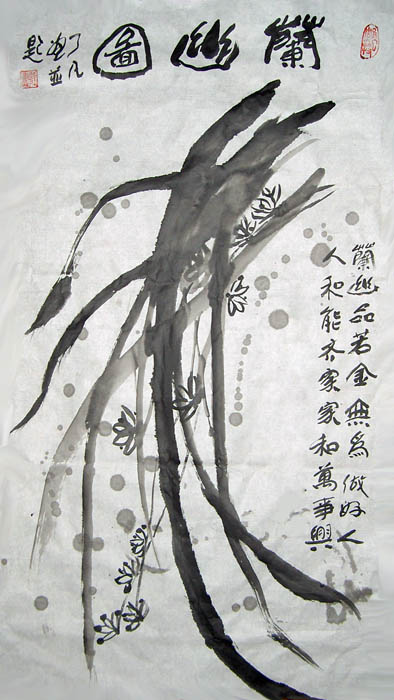 蘭幽圖
了凡
畫並
題
蘭幽品若金無為做好人
人和能齐家家和萬事興